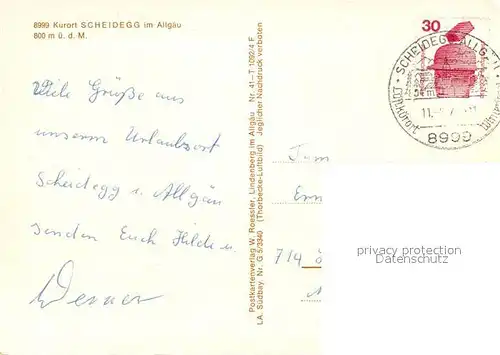 8999 Kurort SCHEIDEGG im Allgäu
800 m ü. d. M.
Viele Grüße aus
unserm Urlaubsort
Scheidegg i. Allgäu
senden Euch Hilde u.
Werner
Postkartenverlag W. Roessler, Lindenberg im Allgäu Nr. 41—T 1092/4 F
LA. Südbay. Nr. G 5/3340 (Thorbecke-Luftbild) Jeglicher Nachdruck verboten
30
SCHEIDEGG
8999
Fam
714
privacy protection
www.ansichtskartenversand.com